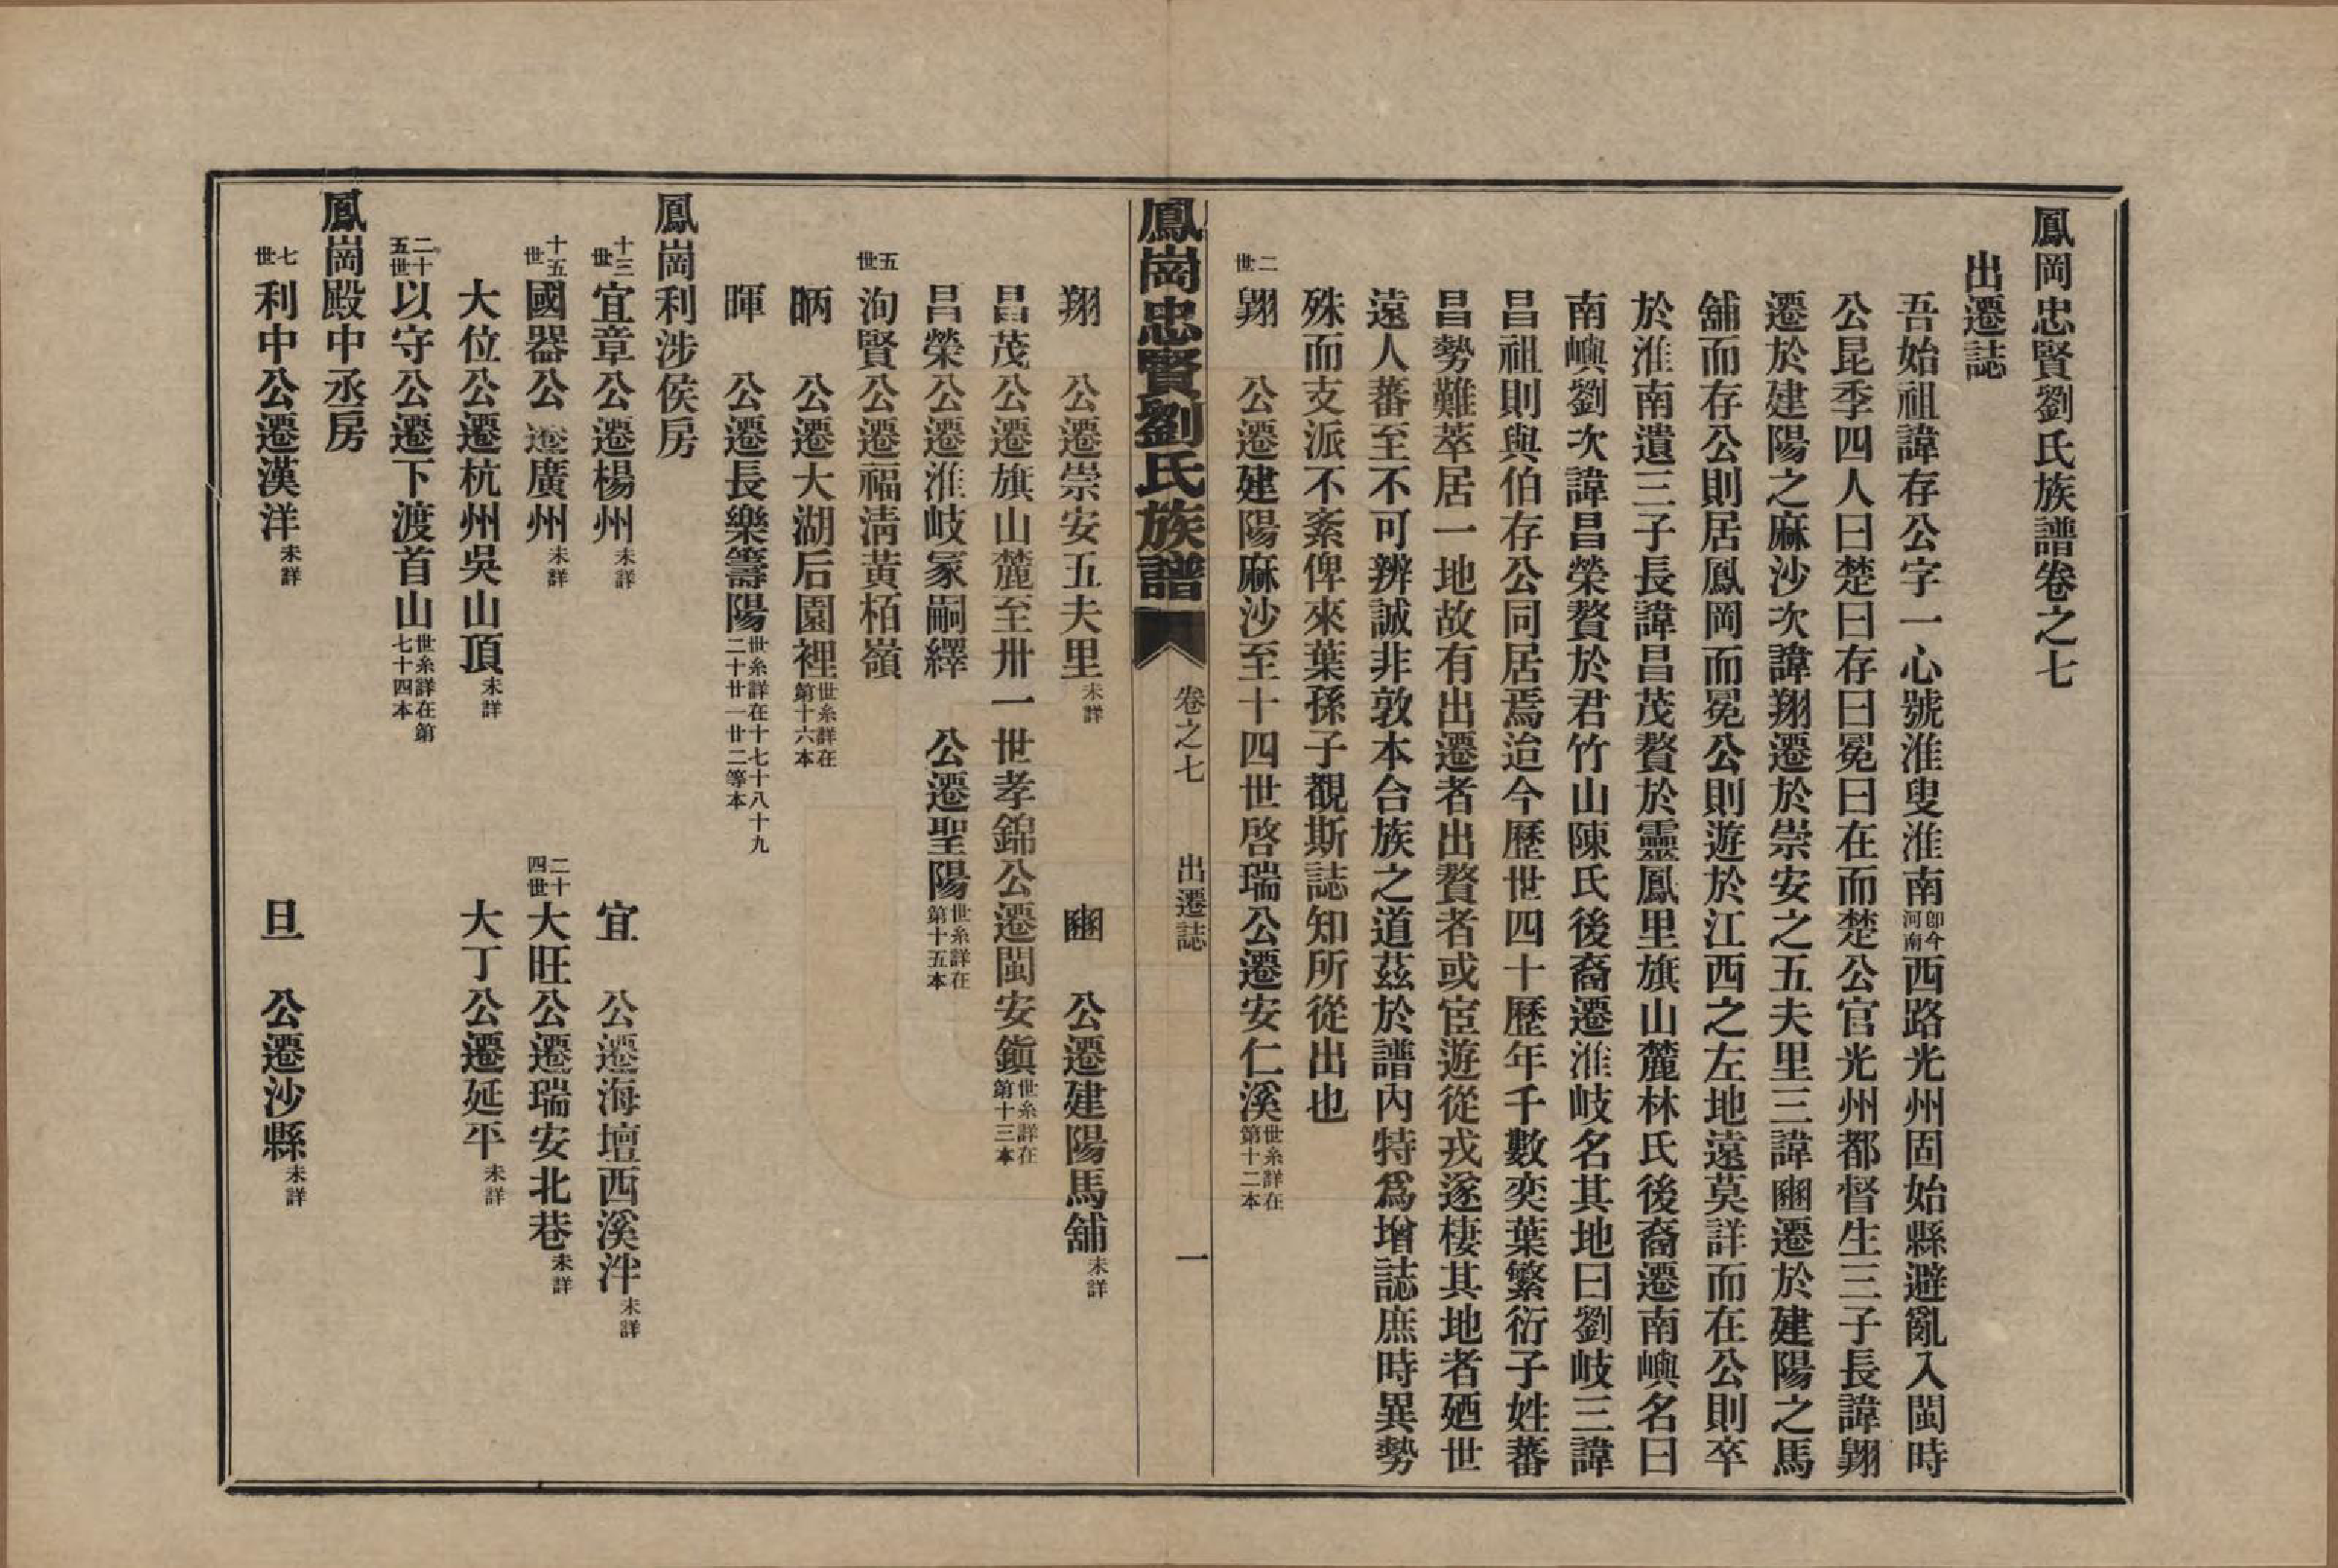 鳳岡忠賢劉氏族譜卷之七
出遷誌
吾始祖諱存公字一心號淮叟淮南卽今河南西路光州固始縣避亂入閩時
公昆季四人曰楚曰存曰冕曰在而楚公官光州都督生三子長諱翺
遷於建陽之麻沙次諱翔遷於崇安之五夫里三諱豳遷於建陽之馬
舖而存公則居鳳岡而冕公則遊於江西之左地遠莫詳而在公則卒
於淮南遺三子長諱昌茂贅於靈鳳里旗山麓林氏後裔遷南嶼名曰
南嶼劉次諱昌榮贅於君竹山陳氏後裔遷淮岐名其地曰劉岐三諱
昌祖則與伯存公同居焉迨今歷世四十歷年千數奕葉繁衍子姓蕃
昌勢難萃居一地故有出遷者出贅者或宦遊從戎遂棲其地者廼世
遠人蕃至不可辨誠非敦本合族之道茲於譜內特爲增誌庶時異勢
殊而支派不紊俾來葉孫子觀斯誌知所從出也
二世 翺 公遷建陽麻沙至十四世啓瑞公遷安仁溪世系詳在第十二本
鳳崗忠賢劉氏族譜 卷之七 出遷誌 一
翔 公遷崇安五夫里未詳 豳 公遷建陽馬舖未詳
昌茂公遷旗山麓至卅一世孝錦公遷閩安鎭世系詳在第十三本
昌榮公遷淮岐冢嗣繹 公遷聖陽世系詳在第十五本
五世 洵賢公遷福淸黃栢嶺
昞 公遷大湖后園裡世系詳在第十六本
暉 公遷長樂籌陽世系詳在十七十八十九二十廿一廿二等本
鳳崗利涉侯房
十三世 宜章公遷楊州未詳 宜 公遷海壇西溪泮未詳
十五世 國器公遷廣州未詳 二十四世 大旺公遷瑞安北巷未詳
大位公遷杭州吳山頂未詳 大丁公遷延平未詳
二十五世 以守公遷下渡首山世系詳在第七十四本
鳳崗殿中丞房
七世 利中公遷漢洋未詳 旦 公遷沙縣未詳